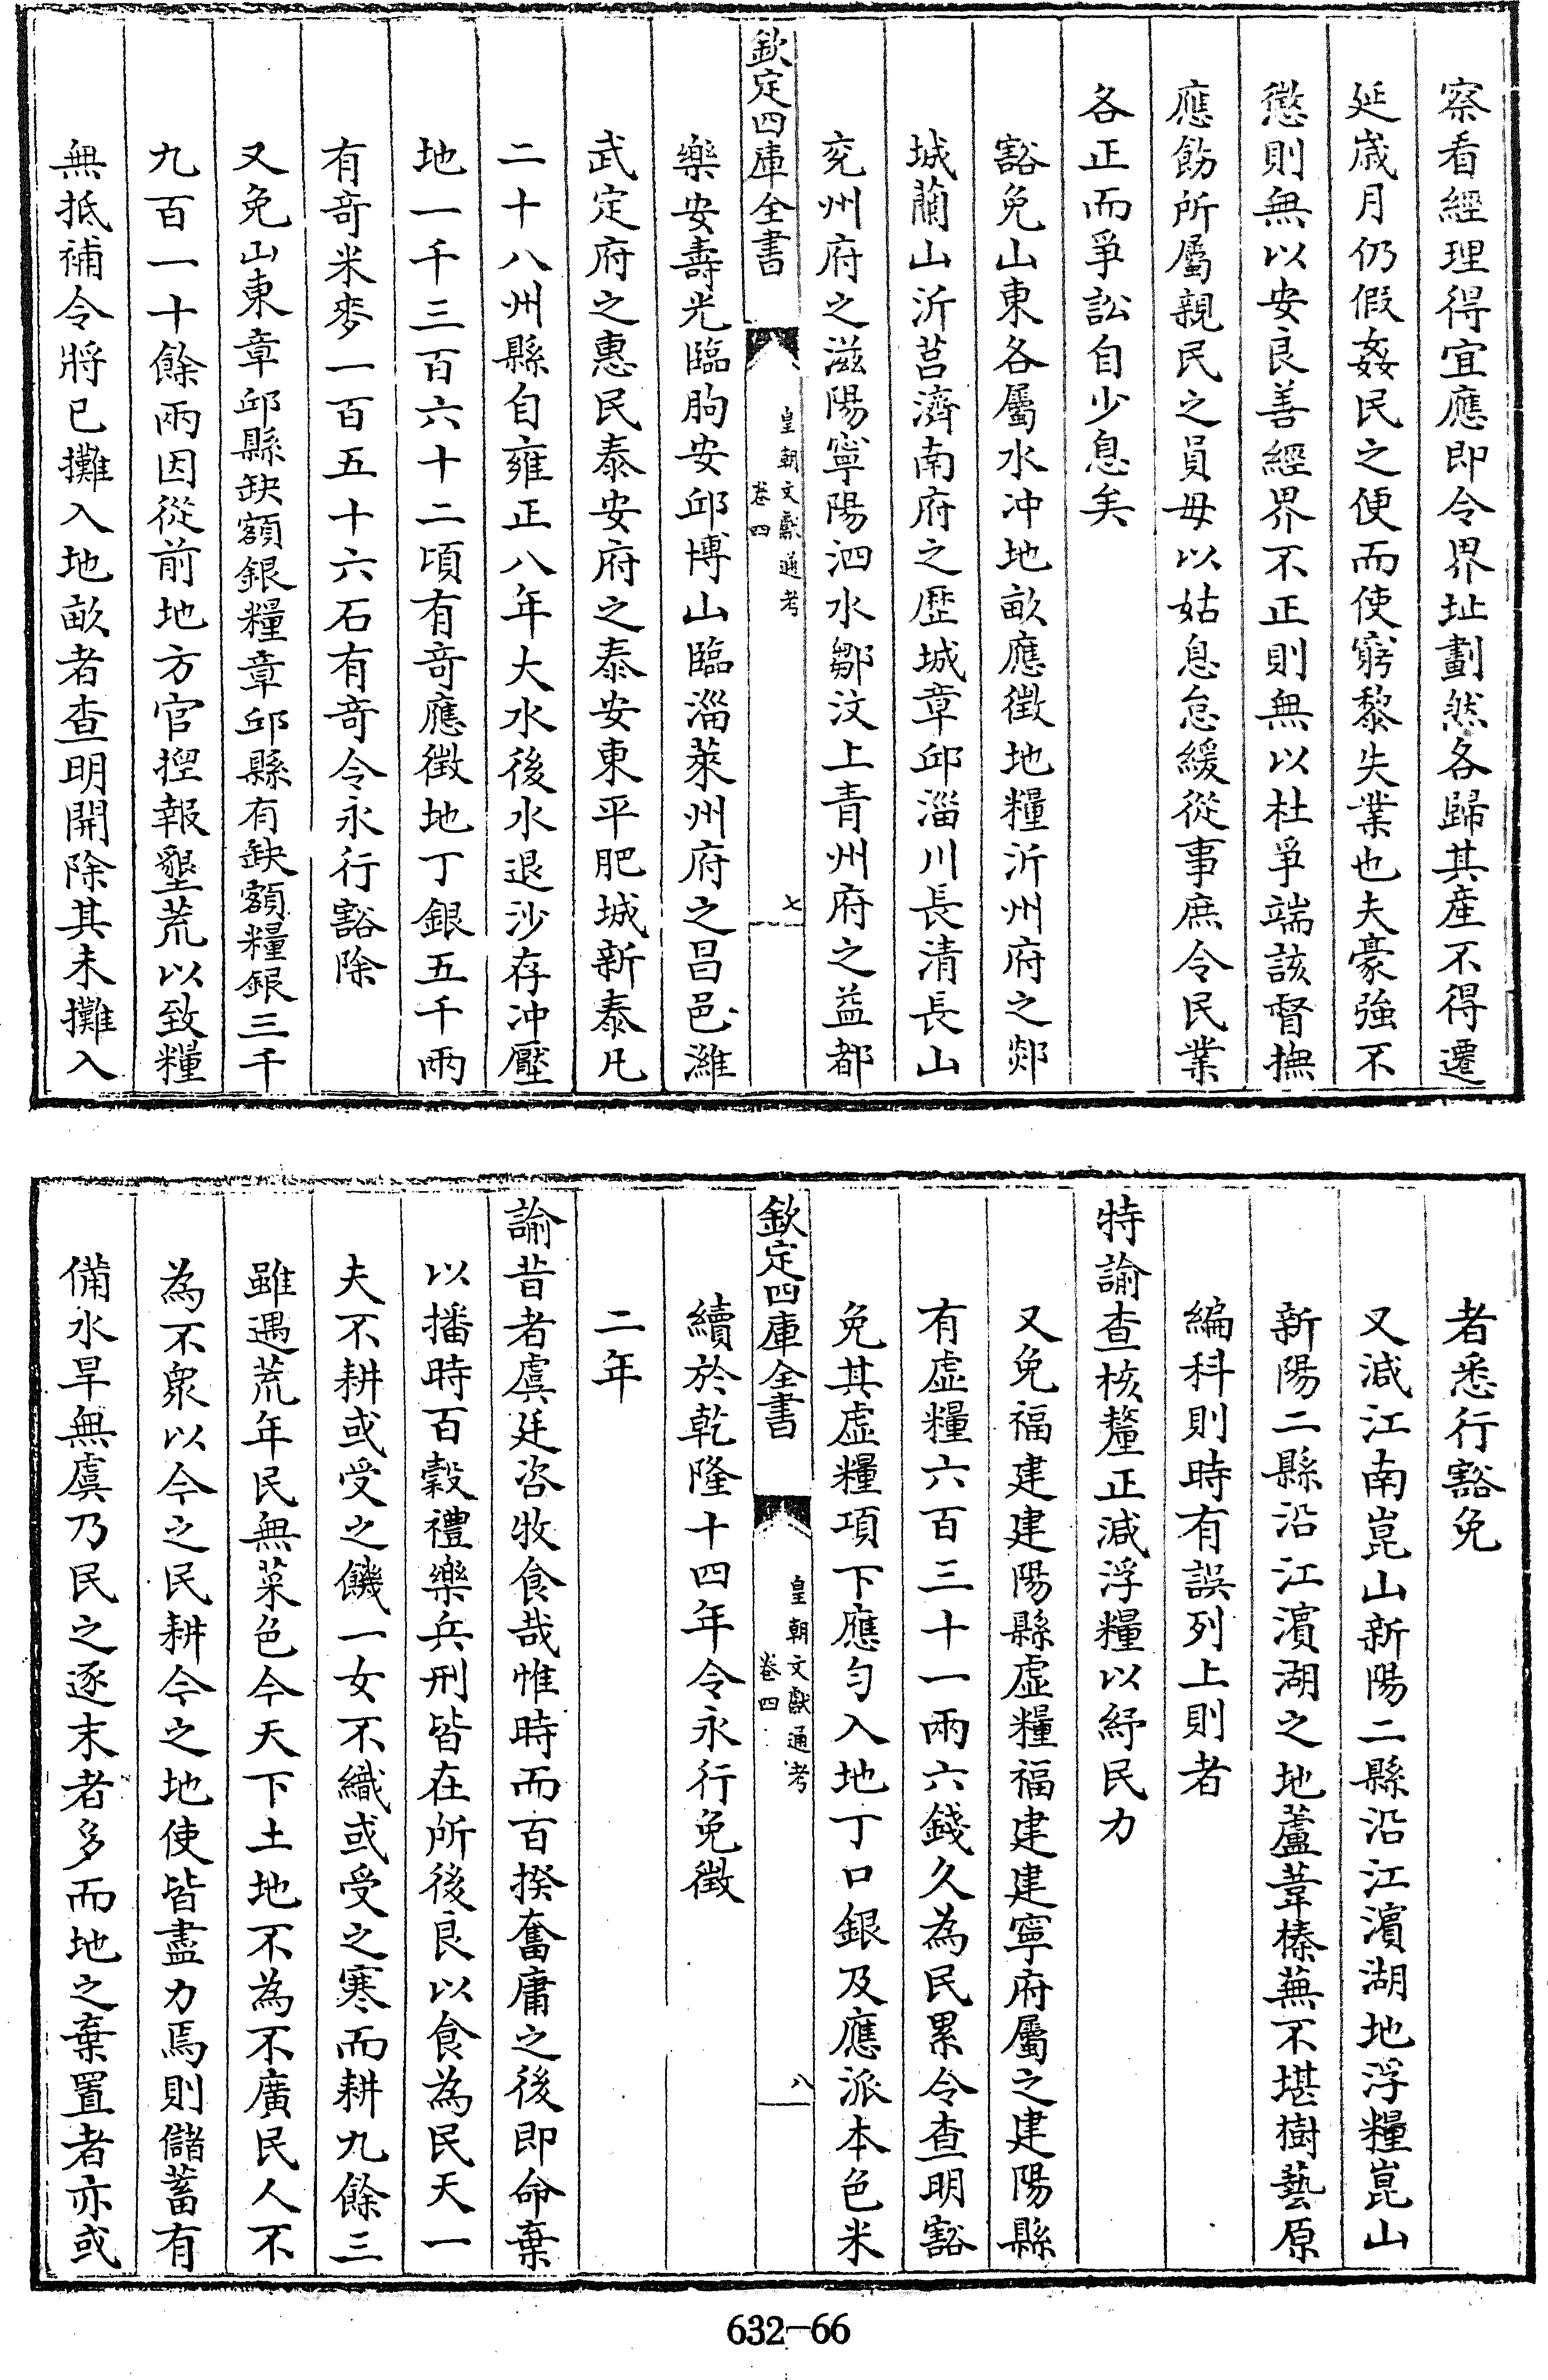 察看經理得宜應即令界址劃然各歸其產不得遷
延歲月仍假姦民之便而使窮黎失業也夫豪強不
懲則無以安良善經界不正則無以杜爭端該督撫
應飭所屬親民之員毋以姑息怠緩從事庶令民業
各正而爭訟自少息矣
豁免山東各屬水冲地畝應徵地糧沂州府之郯
城蘭山沂莒濟南府之歷城章邱淄川長清長山
兖州府之滋陽寧陽泗水鄒汶上青州府之益都
欽定四庫全書
皇朝文獻通考
卷四
七
樂安壽光臨朐安邱博山臨淄萊州府之昌邑濰
武定府之惠民泰安府之泰安東平肥城新泰凡
二十八州縣自雍正八年大水後水退沙存冲壓
地一千三百六十二頃有竒應徵地丁銀五千兩
有竒米麥一百五十六石有竒令永行豁除
又免山東章邱縣缺額銀糧章邱縣有缺額糧銀三千
九百一十餘兩因從前地方官揑報墾荒以致糧
無抵補令將已攤入地畝者查明開除其未攤入
者悉行豁免
又減江南崑山新陽二縣沿江濵湖地浮糧崑山
新陽二縣沿江濵湖之地蘆葦榛蕪不堪樹藝原
編科則時有誤列上則者
特諭查核釐正減浮糧以紓民力
又免福建建陽縣虛糧福建建寧府屬之建陽縣
有虛糧六百三十一兩六錢久為民累令查明豁
免其虛糧項下應勻入地丁口銀及應派本色米
欽定四庫全書
皇朝文獻通考
卷四
八
續於乾隆十四年令永行免徵
二年
諭昔者虞廷咨牧食哉惟時而百揆奮庸之後即命棄
以播時百穀禮樂兵刑皆在所後良以食為民天一
夫不耕或受之饑一女不織或受之寒而耕九餘三
雖遇荒年民無菜色今天下土地不為不廣民人不
為不衆以今之民耕今之地使皆盡力焉則儲蓄有
備水旱無虞乃民之逐末者多而地之棄置者亦或
632-66